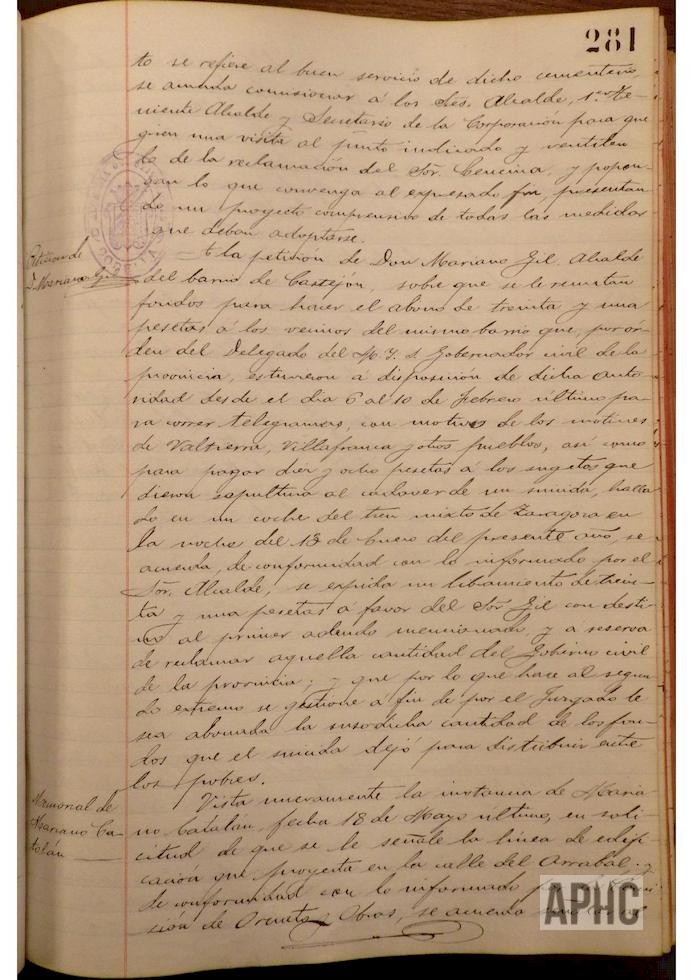 281
to se refiere al buen servicio de dicho cementerio,
se acuerda comisionar á los Sres. Alcalde, 1.er Te-
niente Alcalde y Secretario de la Corporación para que
giren una visita al punto indicado y ventilen
lo de la reclamación del Sor. Cencina, y propon-
gan lo que convenga al expresado fin, presentan-
do un proyecto comprensivo de todas las medidas
que deban adoptarse.
Petición de
D. Mariano Gil
A la petición de Don Mariano Gil, Alcalde
del barrio de Castejón, sobre que se le remitan
fondos para hacer el abono de treinta y una
pesetas á los vecinos del mismo barrio que, por ór-
den del Delegado del M. Y. S. Gobernador civil de la
provincia, estuvieron á disposición de dicha auto-
ridad desde el dia 6 al 10 de Febrero último pa-
ra correr telegramas, con motivo de los motines
de Valtierra, Villafranca y otros pueblos, así como
para pagar diez y ocho pesetas á los sugetos que
dieron sepultura al cadaver de un suicida, halla-
do en un coche del tren mixto de Zaragoza en
la noche del 13 de Enero del presente año, se
acuerda, de conformidad con lo informado por el
Sor. Alcalde, se expida un libramiento de trein-
ta y una pesetas á favor del Sor Gil con desti-
no al primer adeudo mencionado, y á reserva
de reclamar aquella cantidad del Gobierno civil
de la provincia; y que por lo que hace al segun-
do extremo se gestione á fin de por el Juzgado le
sea abonada la susodicha cantidad de los fon-
dos que el suicida dejó para distribuir entre
los pobres.
Memorial de
Mariano Ca-
talán
Vista nuevamente la instancia de Maria-
no Catalán, fecha 18 de Mayo último, en soli-
citud de que se le señale la línea de edifi-
cación que proyecta en la calle del Arrabal; y
de conformidad con lo informado por la Comi-
sión de Ornato y Obras, se acuerda
APHC